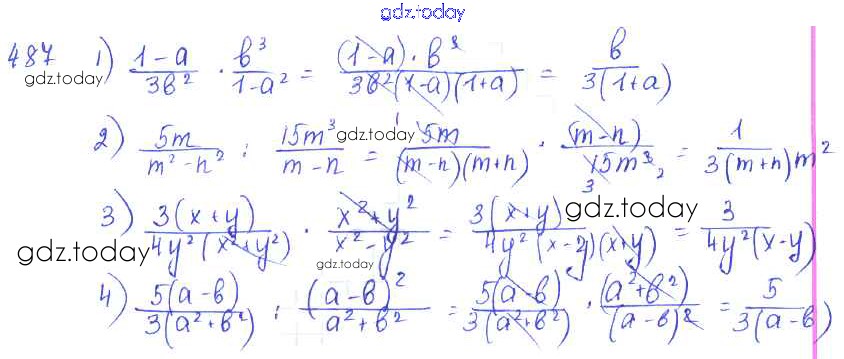 gdz.today
487 1) (1-a)/(3b²) · b³/(1-a²) = ((1-a)·b³)/(3b²(1-a)(1+a)) = b/(3(1+a))
gdz.today
2) 5m/(m²-n²) : 15m³/(m-n) = 5m/((m-n)(m+n)) · (m-n)/(15m³) = 1/(3(m+n)m²)
gdz.today
3) 3(x+y)/(4y²(x²+y²)) · (x²+y²)/(x²-y²) = 3(x+y)/(4y²(x-y)(x+y)) = 3/(4y²(x-y))
gdz.today
gdz.today
gdz.today
4) 5(a-b)/(3(a²+b²)) : (a-b)²/(a²+b²) = 5(a-b)/(3(a²+b²)) · (a²+b²)/(a-b)² = 5/(3(a-b))